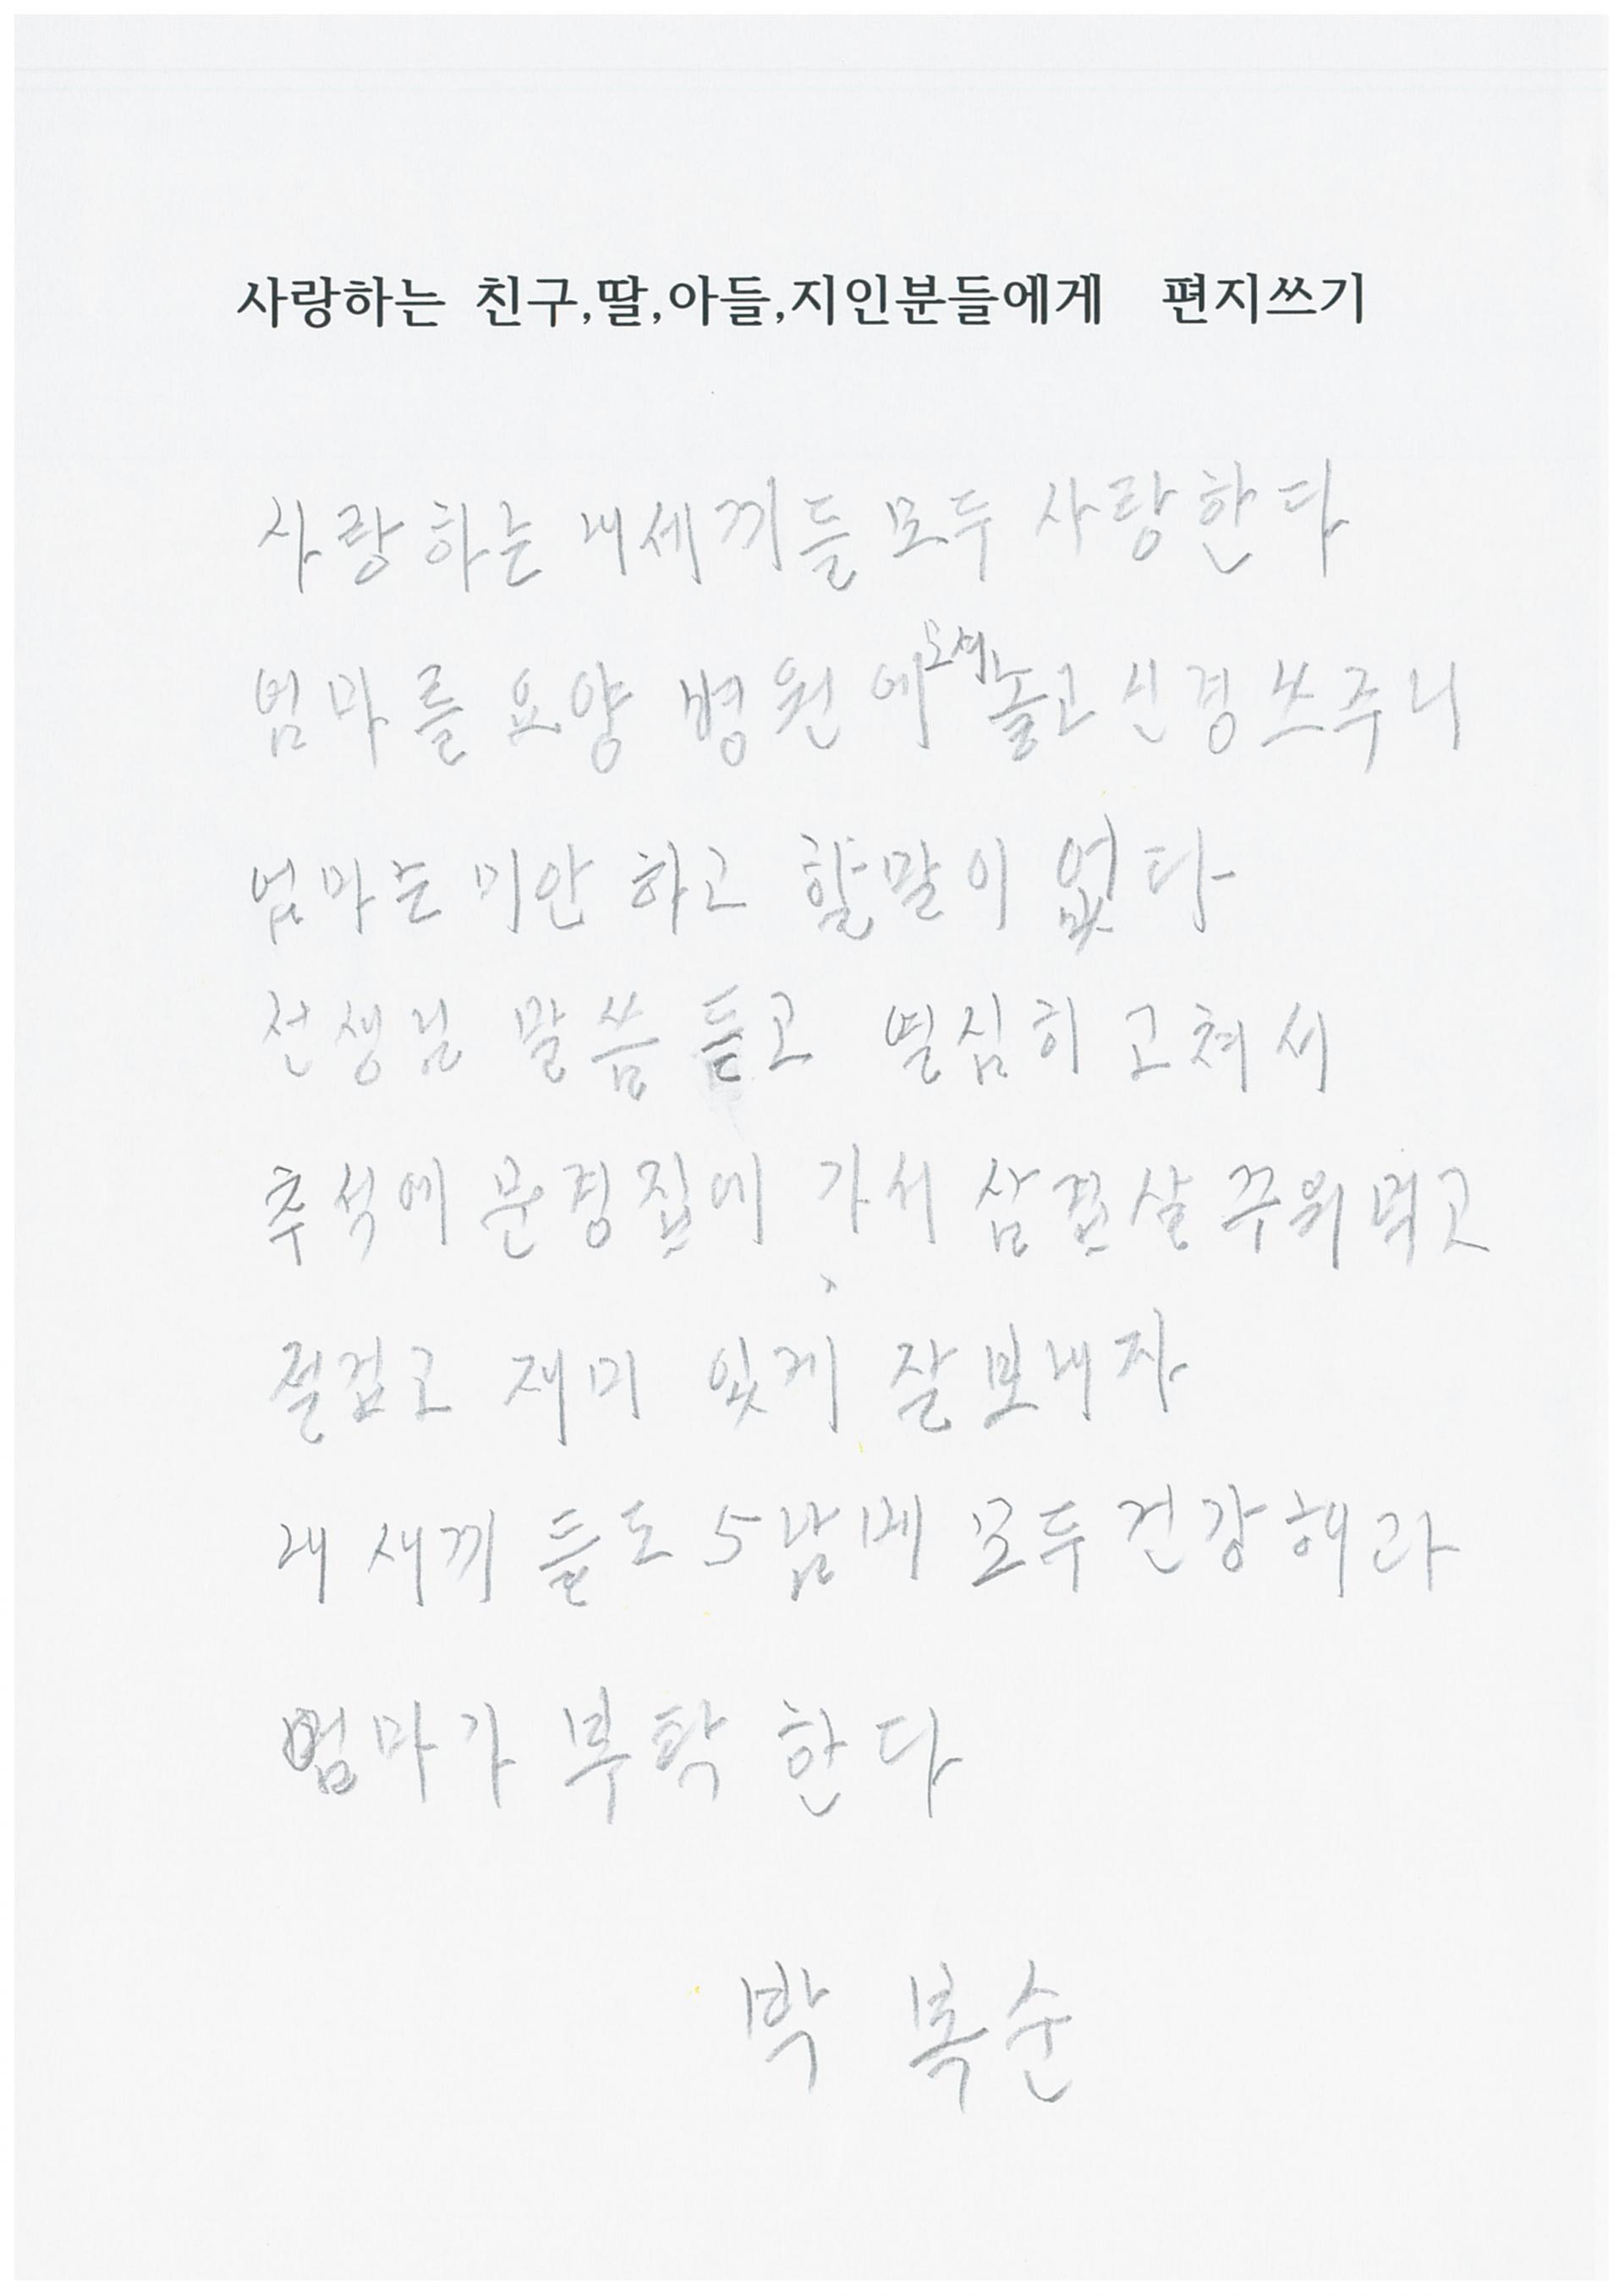 사랑하는 친구,딸,아들,지인분들에게 편지쓰기
사랑하는 내세끼들 모두 사랑한다
엄마를 요양 병원에 모셔놓고 신경쓰주니
엄마는 미안 하고 할말이 없다
선생님 말씀 듣고 열심히 고쳐서
추석에 문경집에 가서 삼겹살 꾸워먹고
즐겁고 재미 있게 잘보내자
내 새끼 들도 5남메 모두 건강해라
엄마가 부탁 한다
박 복순